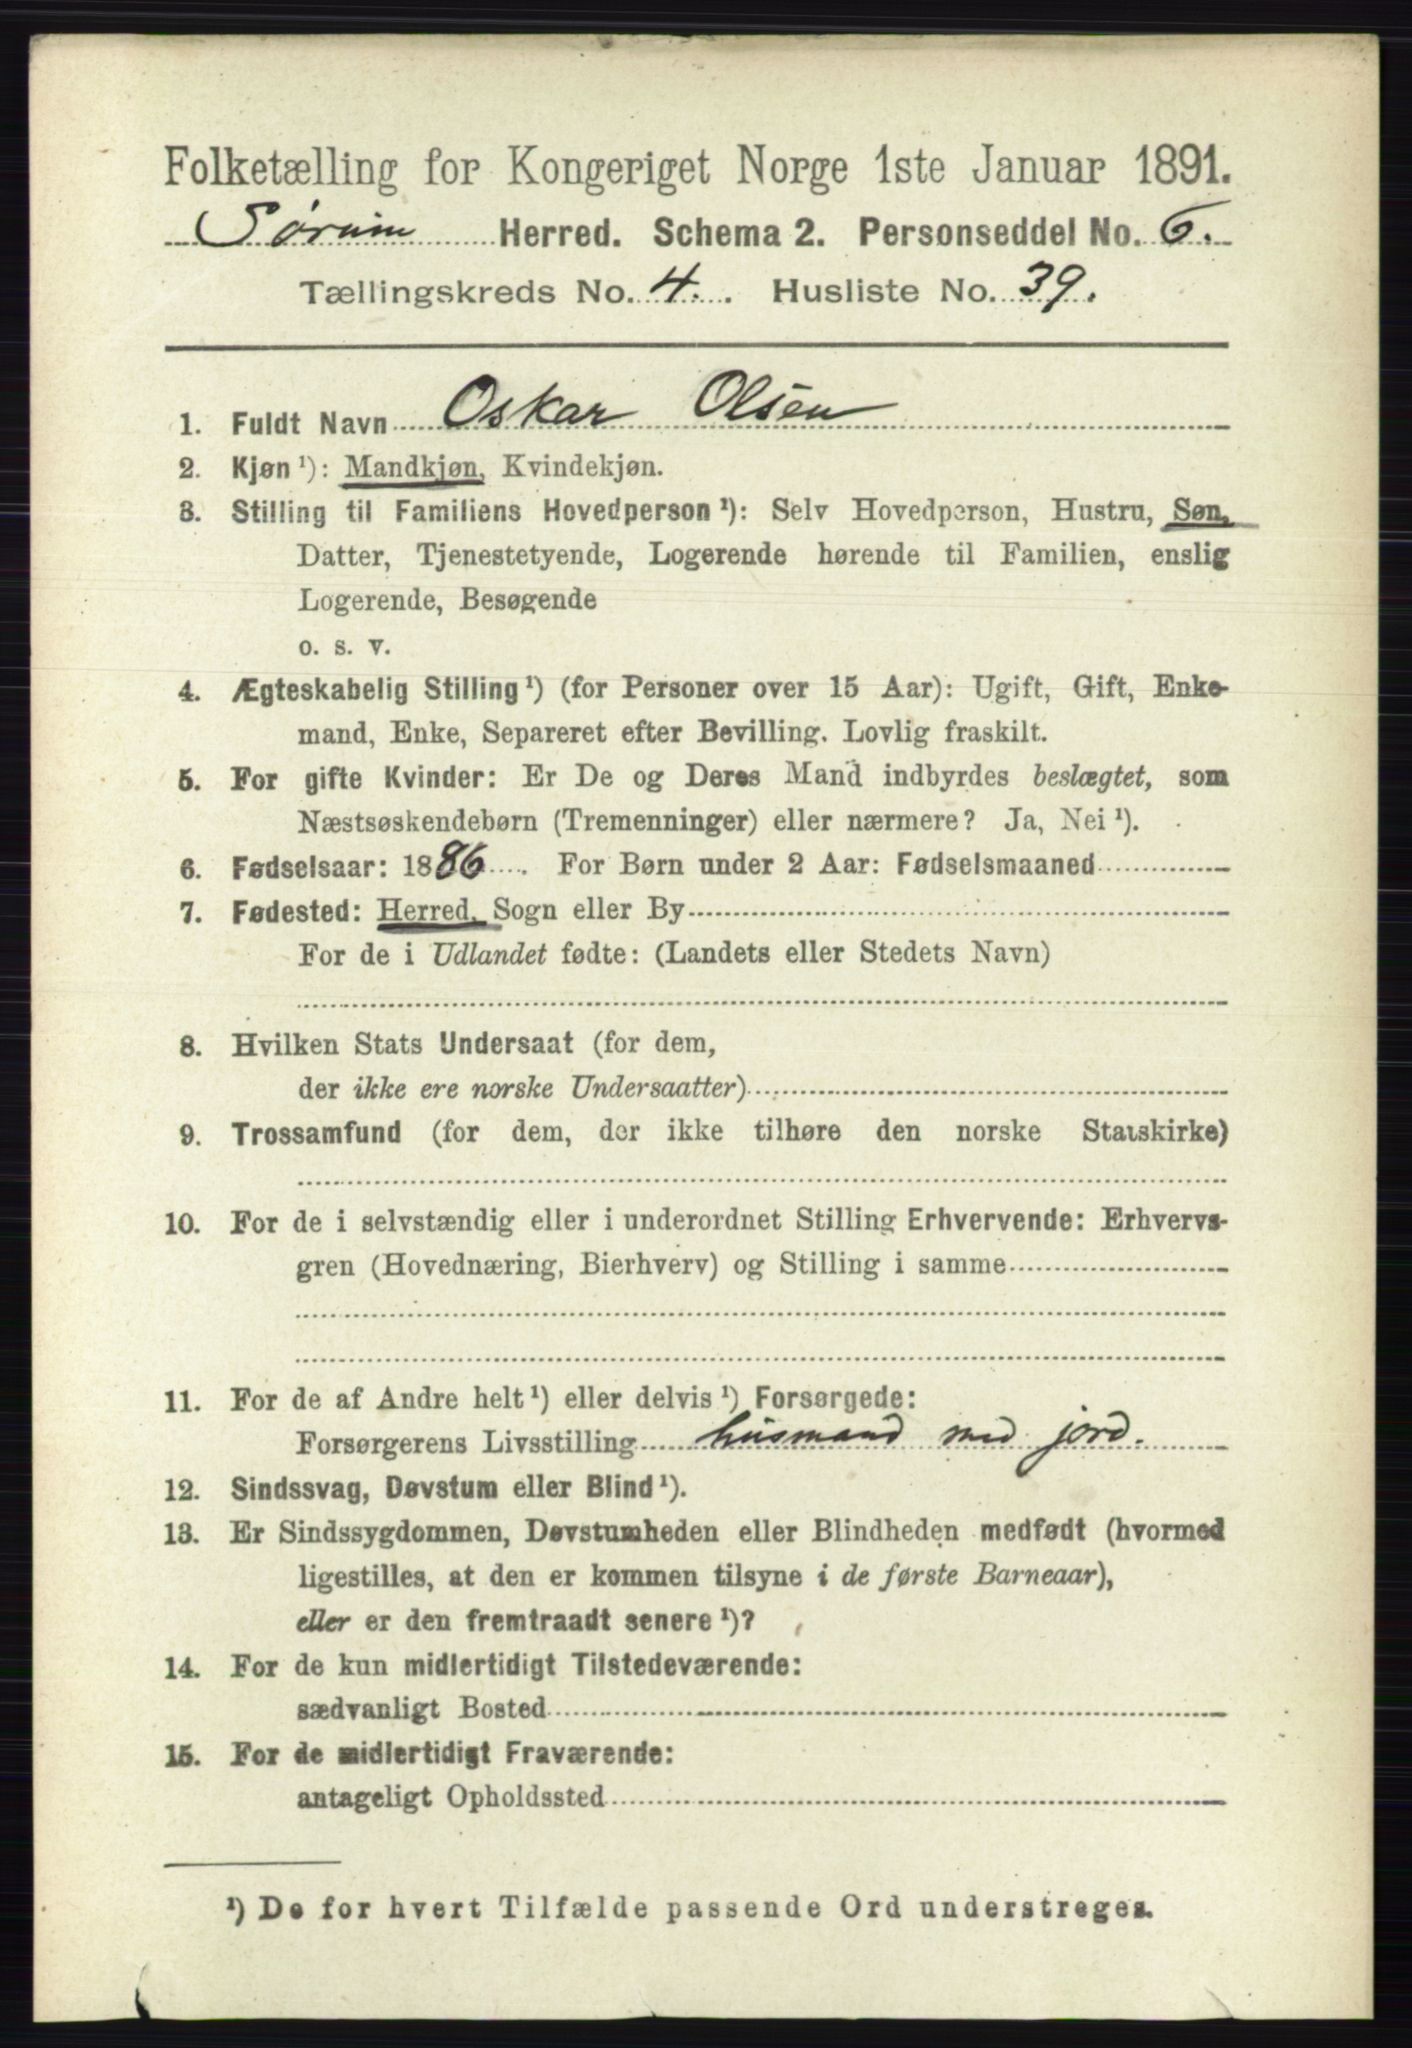 Folketælling for Kongeriget Norge 1ste Januar 1891.
Sørum Herred. Schema 2. Personseddel No. 6.
Tællingskreds No. 4. Husliste No. 39.
1. Fuldt Navn Oskar Olsen
2. Kjøn ¹): Mandkjøn, Kvindekjøn.
3. Stilling til Familiens Hovedperson ¹): Selv Hovedperson, Hustru, Søn,
Datter, Tjenestetyende, Logerende hørende til Familien, enslig
Logerende, Besøgende
o. s. v.
4. Ægteskabelig Stilling ¹) (for Personer over 15 Aar): Ugift, Gift, Enke-
mand, Enke, Separeret efter Bevilling. Lovlig fraskilt.
5. For gifte Kvinder: Er De og Deres Mand indbyrdes beslægtet, som
Næstsøskendebørn (Tremenninger) eller nærmere? Ja, Nei ¹).
6. Fødselsaar: 1886. For Børn under 2 Aar: Fødselsmaaned
7. Fødested: Herred, Sogn eller By
For de i Udlandet fødte: (Landets eller Stedets Navn)
8. Hvilken Stats Undersaat (for dem,
der ikke ere norske Undersaatter)
9. Trossamfund (for dem, der ikke tilhøre den norske Statskirke)
10. For de i selvstændig eller i underordnet Stilling Erhvervende: Erhvervs-
gren (Hovednæring, Bierhverv) og Stilling i samme
11. For de af Andre helt ¹) eller delvis ¹) Forsørgede:
Forsørgerens Livsstilling husmand med jord.
12. Sindssvag, Døvstum eller Blind ¹).
13. Er Sindssygdommen, Døvstumheden eller Blindheden medfødt (hvormed
ligestilles, at den er kommen tilsyne i de første Barneaar),
eller er den fremtraadt senere ¹)?
14. For de kun midlertidigt Tilstedeværende:
sædvanligt Bosted
15. For de midlertidigt Fraværende:
antageligt Opholdssted
¹) De for hvert Tilfælde passende Ord understreges.